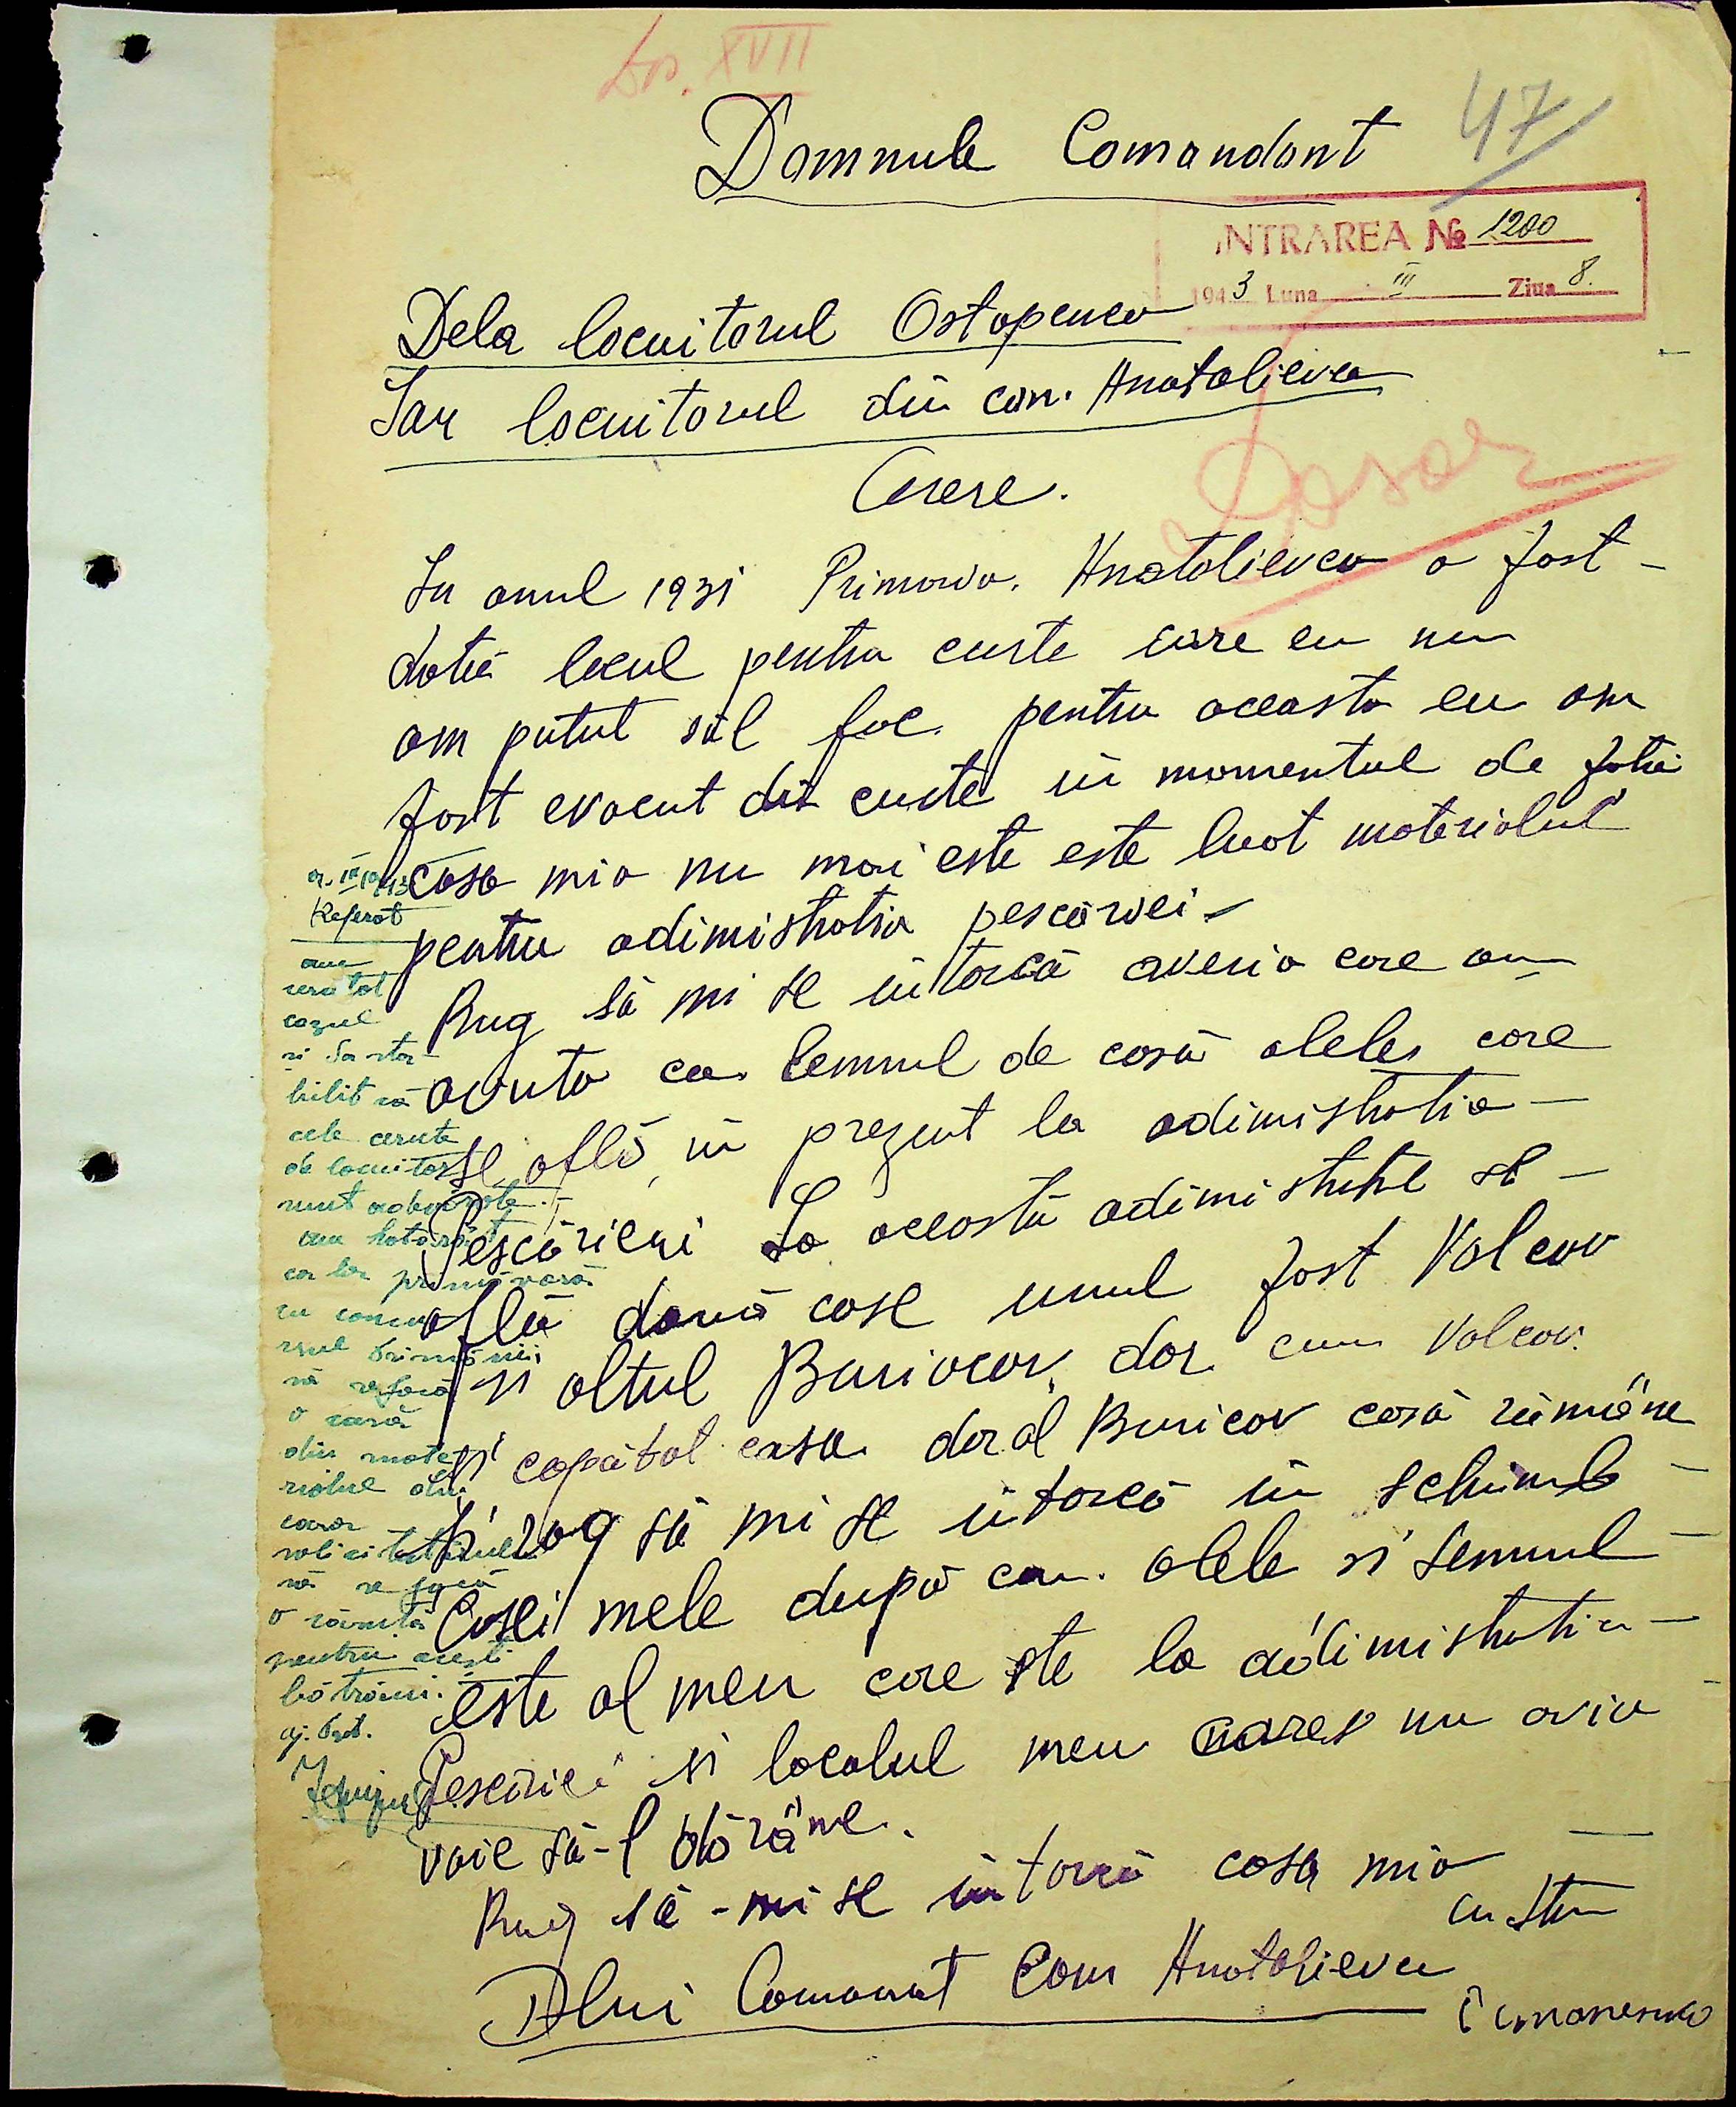 Dos. XVII
47
Domnule Comandant
INTRAREA № 1200
1943 Luna III Ziua 8.
Dela locuitorul Ostapenco
Iau locuitorul din com. Anatolievca
Dosar
Cerere.
In anul 1931 Primaria. Anatolievca a fost -
datâ locul pentru curte care eu nu
am putut săl fac. pentru aceasta eu am
fost evacut din curte in momentul de fatiă
casa mia nu mai este este luat materialul
pentru adimistratia pescăriei -
Rug să mi se intorcă averia care am
avuto ca lemnul de casă aleles care
se află in prezent la adimistratia -
Pescărieni La aceastâ adimistratie se -
află două case unul fost Volcov
si altul Buriacov, dar cum Volcov.
si capătat casa dar al Buricov casă rămâne
si rog să mi se intorcă in schimb -
Casei mele după cum. alele si lemnul -
este al meu care ste la adimistratia -
Pescăriei si localul meu care nu avia
voie să-l dărâme.
Rug să-mi se intorcă casa mia
cu stim
Dlui Comanat Com Anatolievca
Referat
am
cercetat
cazul
si sa sta-
bilit că
cele cerute
de locuitor
sunt adevărate.-
am hotărât
ca la primăvară
cu concu
rsul Primăriei
să refacă
o casă
din mate
rialul din
solicitatorului
să se facă
o căsuță
pentru acești
bătrâni.